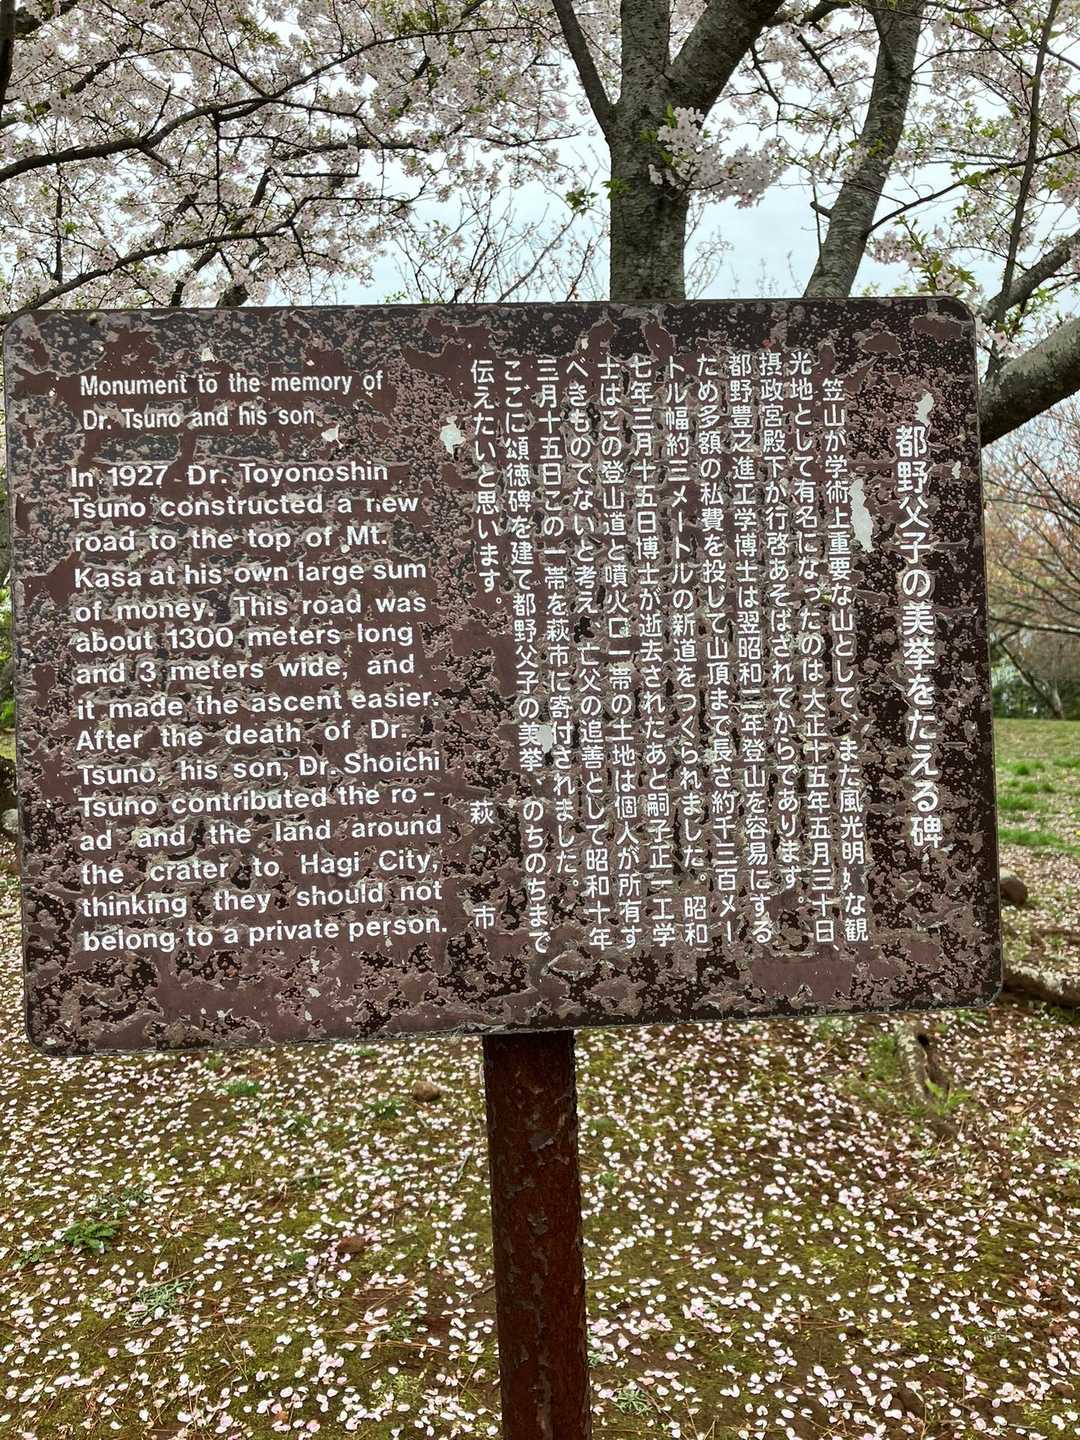 都野父子の美挙をたえる碑
笠山が学術上重要な山として、また風光明な観
光地として有名になったのは大正十五年五月三十日、
摂政宮殿下が行啓あそばされてからであります。
都野豊之進工学博士は翌昭和二年登山を容易にする
ため多額の私費を投じて山頂まで長さ約千三百メー
トル幅約三メートルの新道をつくられました。昭和
七年三月十五日博士が逝去されたあと嗣子正一工学
士はこの登山道と噴火口一帯の土地は個人が所有す
べきものでないと考え、亡父の追善として昭和十年
三月十五日この一帯を萩市に寄付されました。
ここに頌徳碑を建て都野父子の美挙、のちのちまで
伝えたいと思います。
萩市
Monument to the memory of
Dr. Tsuno and his son.
In 1927 Dr. Toyonoshin
Tsuno constructed a new
road to the top of Mt.
Kasa at his own large sum
of money. This road was
about 1300 meters long
and 3 meters wide, and
it made the ascent easier.
After the death of Dr.
Tsuno, his son, Dr. Shoichi
Tsuno contributed the ro-
ad and the land around
the crater to Hagi City,
thinking they should not
belong to a private person.